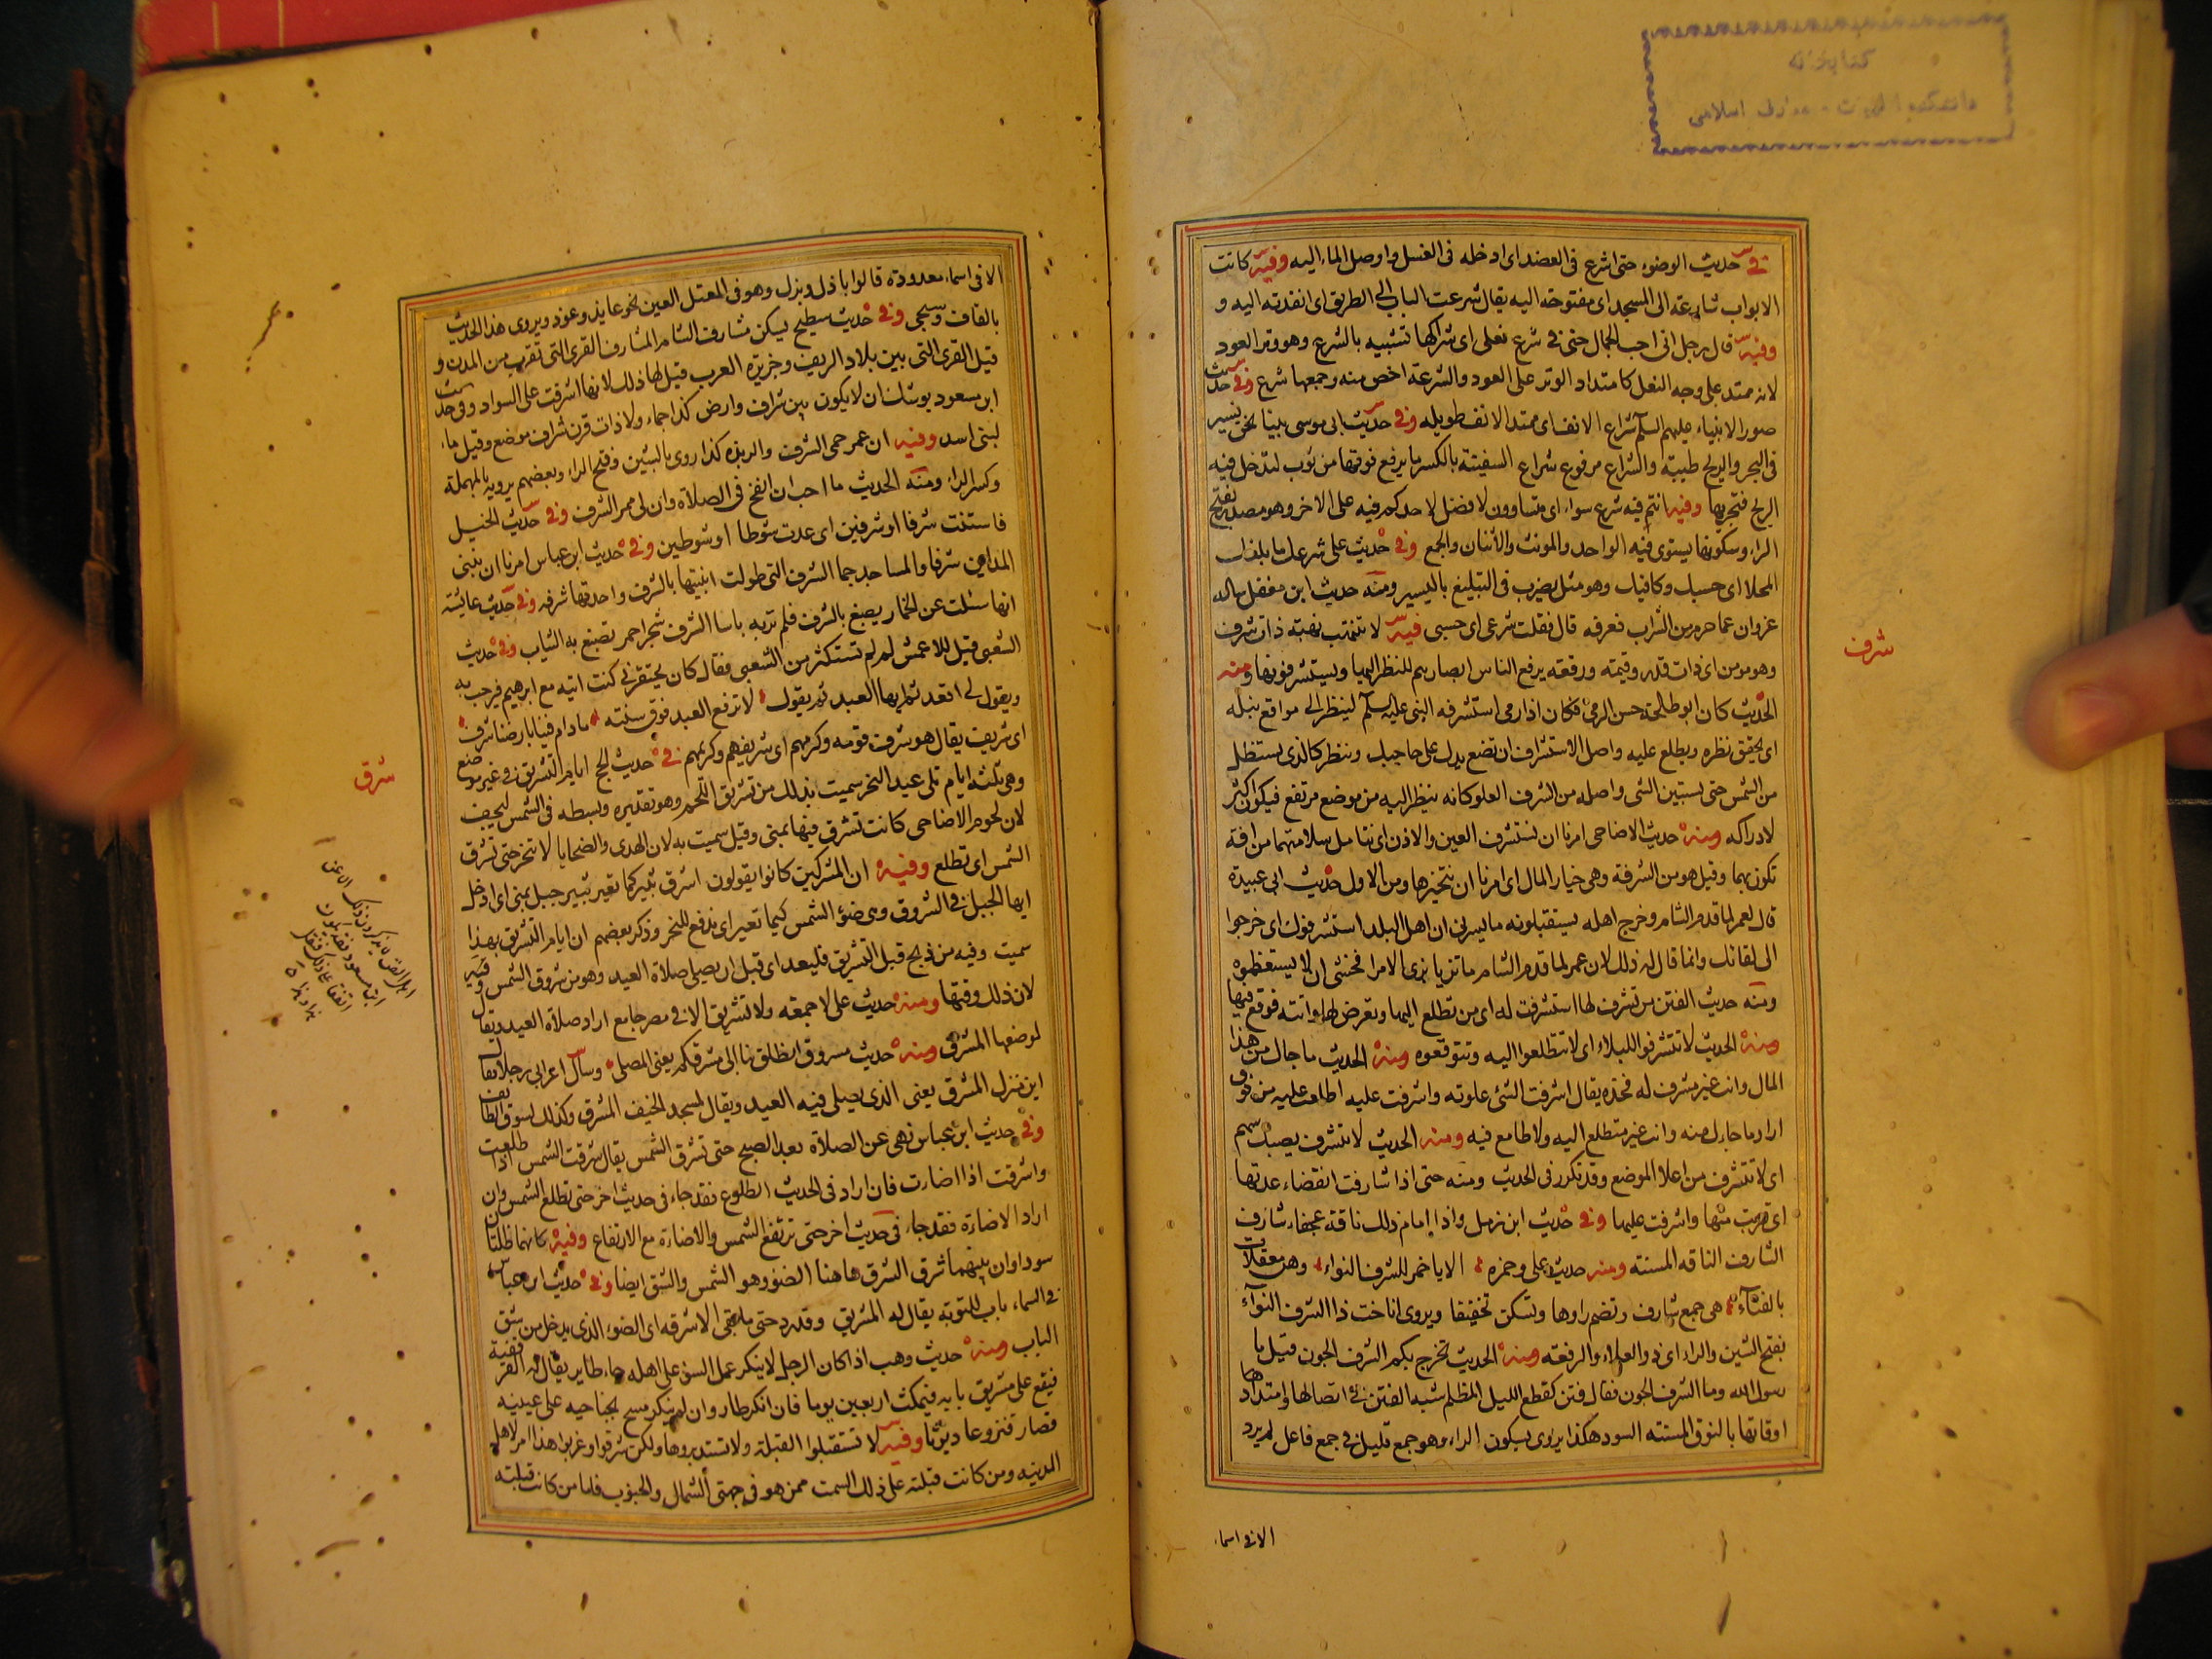 كتابخانه
دانشكده الهيات و معارف اسلامى
في حديث الوضوء حتى اشرع فى العضد اى ادخله فى الغسل واوصل الماء اليه وفيه كانت
الابواب شارعة الى المسجد اى مفتوحة اليه يقال شرعت الباب الى الطريق اى انفدته اليه و
وفيه قال رجل انى احب الجمال حتى في شرع نعلى اى شراكها تشبيه بالشرع وهو وتر العود
لانه ممتد على وجه النعل كامتداد الوتر على العود والشرعة اخص منه وجمعها شرع وفي حديث
صور الانبياء عليهم السلم شراع الانف اى ممتد الانف طويله وفي حديث ابى موسى بينا نحن نسير
فى البحر والريح طيبة والشراع مرفوع شراع السفينة بالكسر ما يرفع فوقها من ثوب لتدخل فيه
الريح فتجريها وفيه انتم فيه شرع سواء اى متساوون لا فضل لاحدكم فيه على الاخر وهو مصدر بفتح
الراء وسكونها يستوى فيه الواحد والمونث والاثنان والجمع وفي حديث على شرعك ما بلغك
المحلا اى حسبك وكافيك وهو مثل يضرب فى التبليغ باليسير ومنه حديث ابن مغفل ساله
غزوان عما حرم من الشراب فعرفه قال فقلت شرعى اى حسبى فيه لا تنتهب نهبة ذات شرف
شرف
وهو مومن اى ذات قدر وقيمته ورفعته يرفع الناس ابصارهم للنظر اليها ويستشرفونها ومنه
الحديث كان ابو طلحة حسن الرمى فكان اذا رمى استشرفه النبى عليه السلم لينظر الى مواقع نبله
اى يحقق نظره ويطلع عليه واصل الاستشراف ان تضع يدك على حاجبك وننظر كالذى يستظل
من الشمس حتى يستبين الشى واصله من الشرف العلو كانه ينظر اليه من موضع مرتفع فيكون اكثر
لادراكه ومنه حديث الاضاحى امرنا ان نستشرف العين والاذن اى نتامل سلامتهما من افة
تكون بهما وقيل هو من الشرفة وهى خيار المال اى امرنا ان نتخيرها ومن الاول حديث ابى عبيدة
قال لعمر لما قدم الشام وخرج اهله يستقبلونه ما يسرنى ان اهل البلد استشرفوك اى خرجوا
الى لقائك وانما قال له ذلك لان عمر لما قدم الشام ما تزيا بزى الامرا فخشى ان لا يستعظموه
ومنه حديث الفتن من تشرف لها استشرفت له اى من تطلع اليها وتعرض لها واتته فوقع فيها
ومنه الحديث لا تتشرفوا للبلاء اى لا تتطلعوا اليه وتتوقعوه ومنه الحديث ما جاك من هذا
المال وانت غير مشرف له فخذه يقال اشرفت الشئ علوته واشرفت عليه اطلعت عليه من فوق
اراد ما جاءك منه وانت غير متطلع اليه ولا طامع فيه ومنه الحديث لا تشرف يصبك سهم
اى لا تتشرف من اعلا الموضع وقد تكرر فى الحديث ومنه حتى اذا شارفت انقضاء عدتها
اى قربت منها واشرفت عليها وفي حديث ابن زمل واذا امام ذلك ناقة عجفاء شارف
الشارف الناقه المسنة ومنه حديث على وحمزه الا يا حمز للشرف النواء وهن معقلات
بالفناء هى جمع شارف وتضم راوها وتسكن تخفيفا ويروى اناخت ذا الشرف النواء
بفتح الشين والراء اى ذو العلاء والرفعه ومنه الحديث تخرج بكم الشرف الجون قيل يا
رسول الله وما الشرف الجون فقال فتن كقطع الليل المظلم شبه الفتن فى اتصالها وامتداد
اوقاتها بالنوق المسنة السود هكذا يروى بسكون الراء وهو جمع قليل في جمع فاعل لم يرد
الا في اسماء
الا فى اسماء معدودة قالوا باذل وبزل وهو فى المعتل العين نحو عايذ وعوذ ويروى هذا الحديث
بالقاف وسيجى وفي حديث سطيح يسكن مشارف الشام المشارف القرى التى تقرب من المدن و
قيل القرى التى بين بلاد الريف وجزيرة العرب قيل لها ذلك لانها اشرفت على السواد وفى حديث
ابن مسعود يوشك ان لا يكون بين شراف وارض كذا جماء ولا ذات قرن شراف موضع وقيل ماء
لبنى اسد وفيه ان عمر حمى الشرف والربذه كذا روى بالشين وفتح الراء وبعضهم يرويه بالمهملة
وكسر الراء ومنه الحديث ما احب ان انفخ فى الصلاة وان لى ممر الشرف وفي حديث الخيل
فاستنت شرفا او شرفين اى عدت شوطا او شوطين وفي حديث ابن عباس امرنا ان نبنى
المداين شرفا والمساجد جما الشرف التى طولت ابنيتها بالشرف واحدتها شرفه وفي حديث عايشة
انها سئلت عن الخمار يصبغ بالشرف فلم تر به باسا الشرف شجر احمر تصبغ به الثياب وفي حديث
الشعبى قيل للاعمش لم لم تستكثر من الشعبى فقال كان يحتقرنى كنت اتيه مع ابرهيم فيرحب به
ويقول لى اقعد ثم ايها العبد ثم يقول لا ترفع العبد فوق سنته ما دام فينا بارضنا شرف
اى شريف يقال هو شرف قومه وكرمهم اى شريفهم وكريمهم في حديث الحج ايام التشريق فى غير موضع
شرق
وهى ثلثة ايام تلى عيد النحر سميت بذلك من تشريق اللحم وهو تقديره وبسطه فى الشمس ليجف
لان لحوم الاضاحى كانت تشرق فيها بمنى وقيل سميت به لان الهدى والضحايا لا تنحر حتى تشرق
الشمس اى تطلع وفيه ان المشركين كانوا يقولون اشرق ثبير كما نغير ثبير جبل بمنى اى ادخل
ايها الجبل فى الشروق وهى ضوء الشمس كيما نغير اى ندفع للنحر وذكر بعضهم ان ايام التشريق بهذا
سميت وفيه من ذبح قبل التشريق فليعد اى قبل ان يصلى صلاة العيد وهو من شروق الشمس
لان ذلك وقتها ومنه حديث على لا جمعة ولا تشريق الا فى مصر جامع اراد صلاة العيد ويقال
لموضعها المشرق ومنه حديث مسروق انطلق بنا الى مشرقكم يعنى المصلى وسال اعرابى رجلا فقال
اين منزل المشرق يعنى الذى يصلى فيه العيد ويقال لمسجد الخيف المشرق وكذلك لسوق الطايف
وفي حديث ابن عباس نهى عن الصلاة بعد الصبح حتى تشرق الشمس يقال شرقت الشمس اذا طلعت
واشرقت اذا اضاءت فان اراد فى الحديث الطلوع فقد جاء فى حديث اخر حتى تطلع الشمس وان
اراد الاضاءة فقد جاء فى حديث اخر حتى ترتفع الشمس والاضاءة مع الارتفاع وفيه كانهما ظلتان
سوداوان بينهما شرق الشرق هاهنا الضوء وهو الشمس والشق ايضا وفي حديث ابن عباس
في السماء باب للتوبة يقال له المشريق وقد رد حتى ما بقى الا شرقه اى الضوء الذى يدخل من شق
الباب ومنه حديث وهب اذا كان الرجل لا ينكر عمل السوء على اهله جاء طاير يقال له القرقفنة
فيقع على مشريق بابه فيمكث اربعين يوما فان انكر طار وان لم ينكر مسح بجناحيه على عينيه
فصار قنزعا ديوثا وفيه لا تستقبلوا القبلة ولا تستدبروها ولكن شرقوا او غربوا هذا امر لاهل
المدينه ومن كانت قبلته على ذلك السمت ممن هو فى جهتى الشمال والجنوب فاما من كانت قبلته